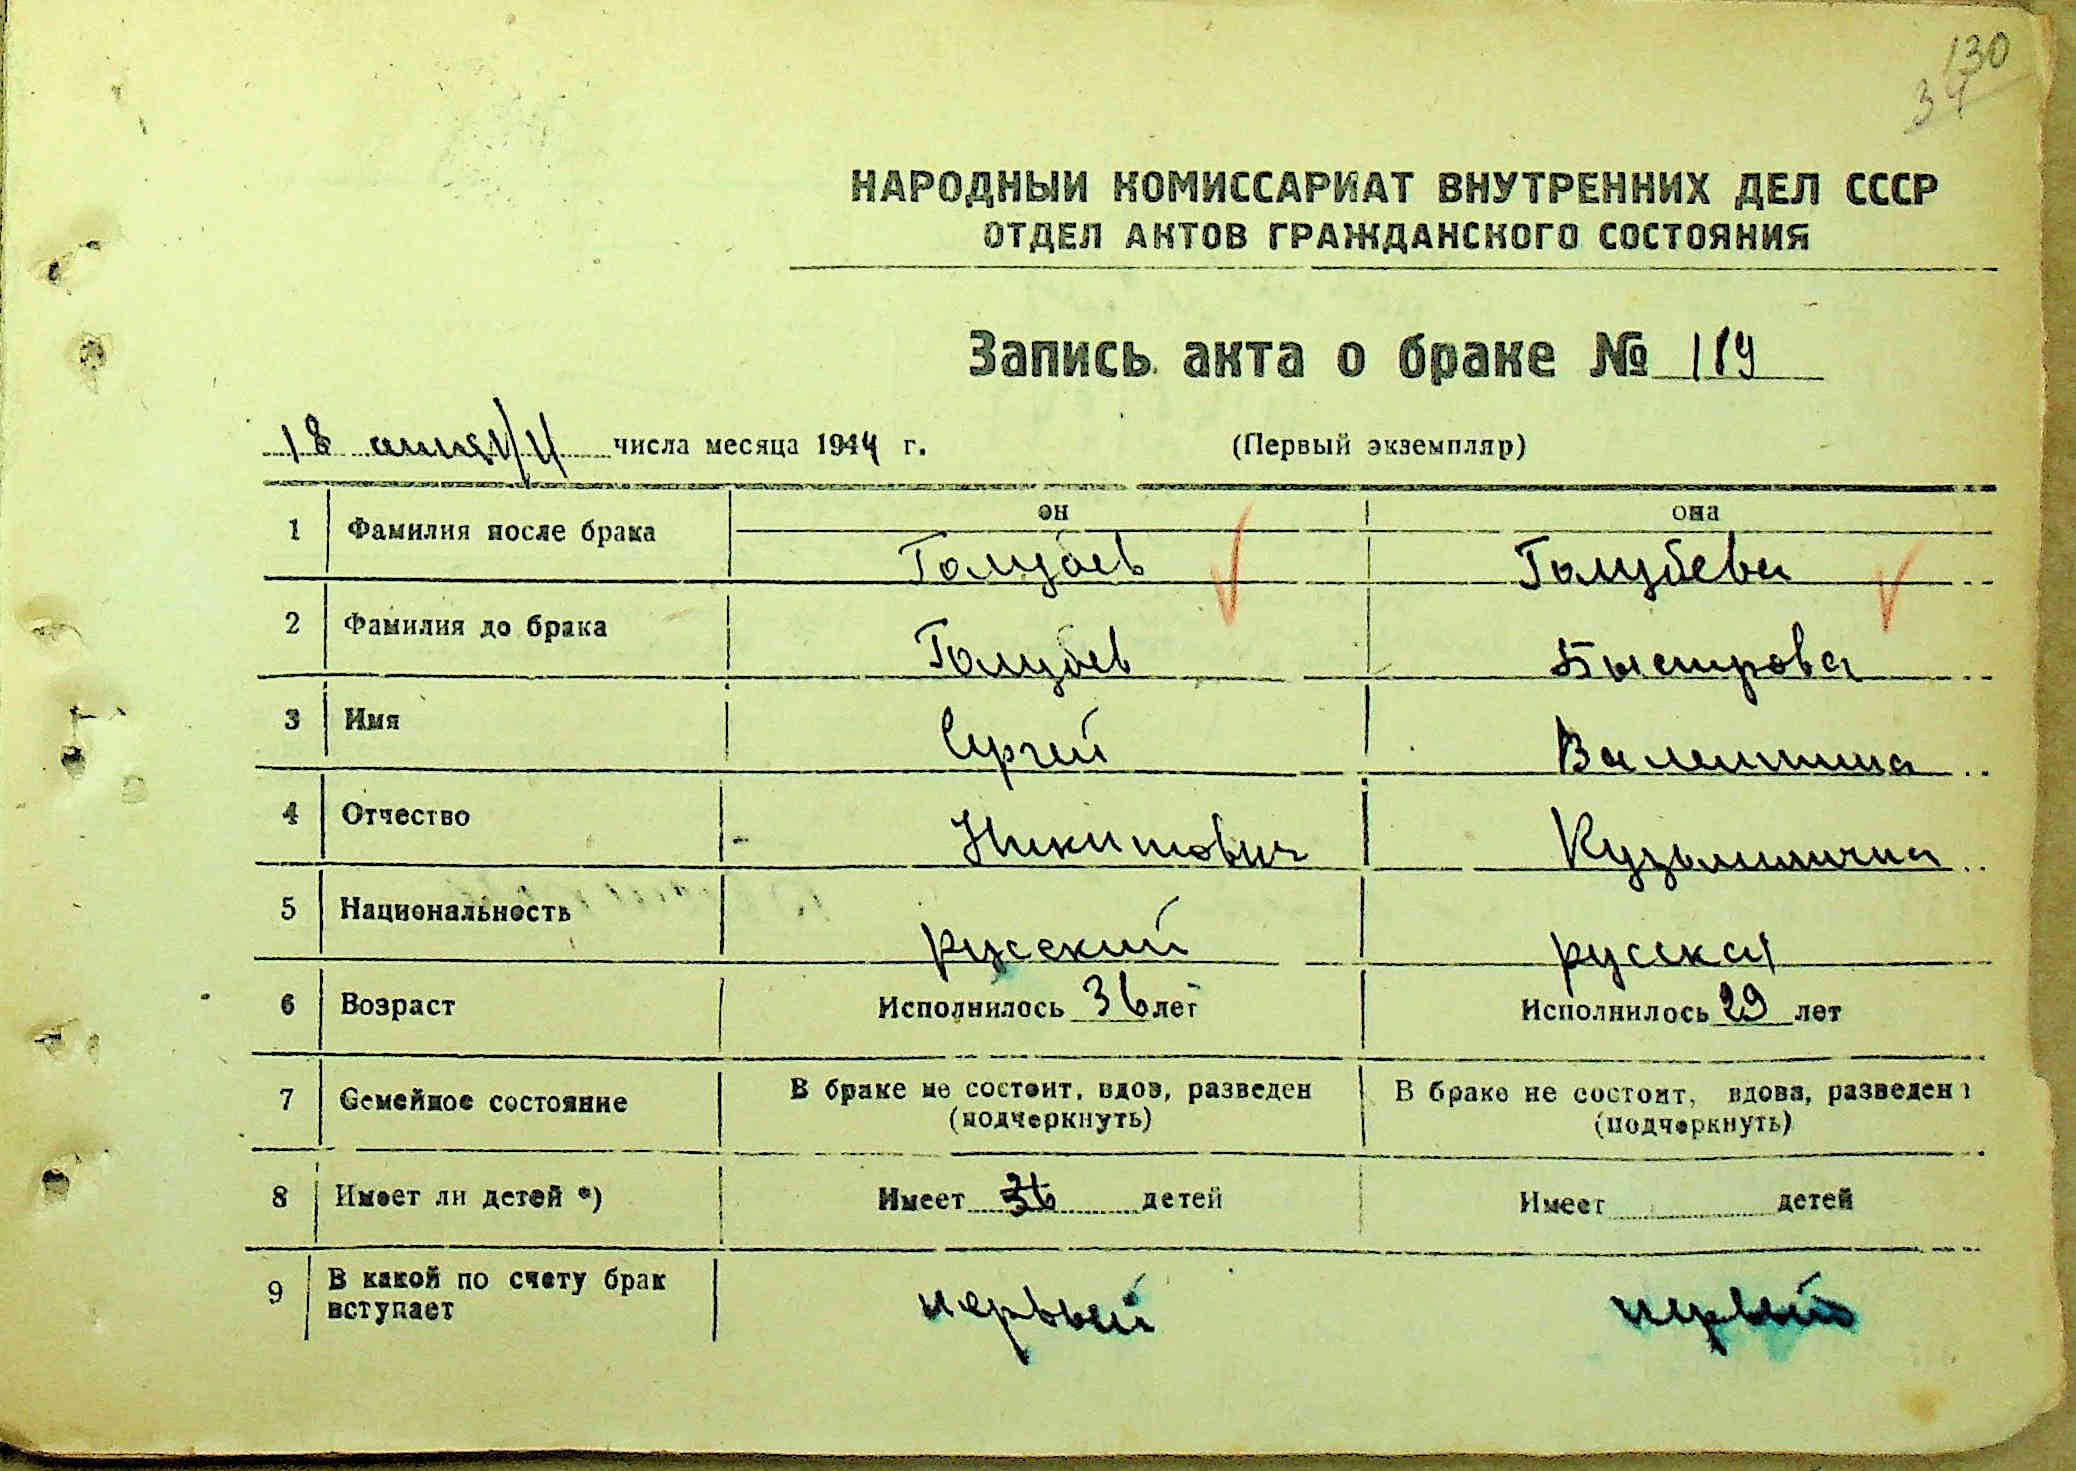 130
34
НАРОДНЫЙ КОМИССАРИАТ ВНУТРЕННИХ ДЕЛ СССР
ОТДЕЛ АКТОВ ГРАЖДАНСКОГО СОСТОЯНИЯ
Запись акта о браке № 189
18 числа месяца 1944 г. (Первый экземпляр)
он она
1 Фамилия после брака Голубев Голубева
2 Фамилия до брака Голубев Быстрова
3 Имя Сергей Валентина
4 Отчество Никитович Кузьминична
5 Национальность русский русская
6 Возраст Исполнилось 36 лет Исполнилось 29 лет
7 Семейное состояние В браке не состоит, вдов, разведен В браке не состоит, вдова, разведена
(подчеркнуть) (подчеркнуть)
8 Имеет ли детей *) Имеет 36 детей Имеет детей
9 В какой по счету брак вступает первый первый